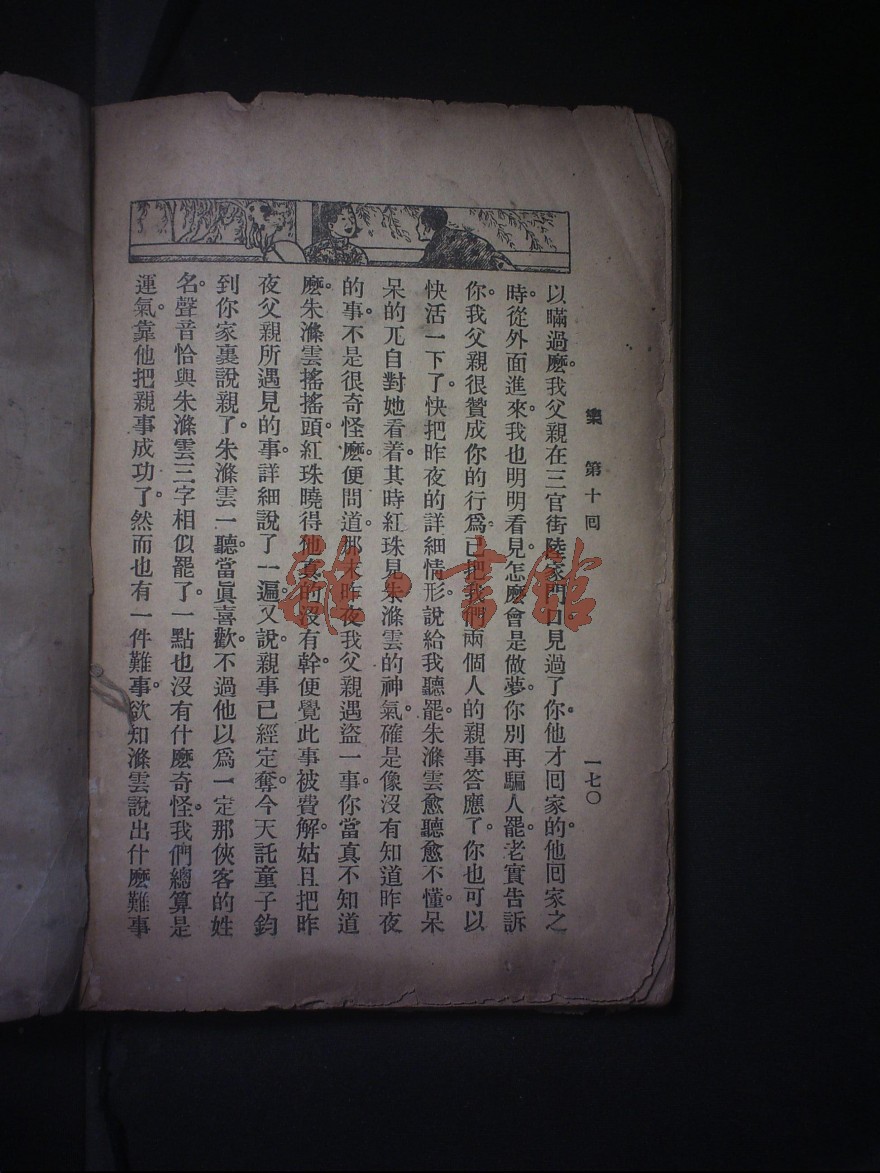 集 第十回 一七〇
以瞞過麽。我父親在三官街陸家門口見過了你。他才回家的。他回家之
時。從外面進來。我也明明看見。怎麽會是做夢。你別再騙人罷。老實告訴
你。我父親很贊成你的行爲。已把我們兩個人的親事答應了。你也可以
快活一下了。快把昨夜的詳細情形。說給我聽罷。朱滌雲愈聽愈不懂。呆
呆的兀自對她看着。其時紅珠見朱滌雲的神氣。確是像沒有知道昨夜
的事。不是很奇怪麽。便問道。那末昨夜我父親遇盜一事。你當真不知道
麽。朱滌雲搖搖頭。紅珠曉得他真的沒有幹。便覺此事被費解。姑且把昨
夜父親所遇見的事。詳細說了一遍。又說。親事已經定奪。今天託童子鈞
到你家裏說親了。朱滌雲一聽。當眞喜歡。不過他以爲一定那俠客的姓
名。聲音恰與朱滌雲三字相似罷了。一點也沒有什麽奇怪。我們總算是
運氣。靠他把親事成功了。然而也有一件難事。欲知滌雲說出什麽難事
雜·書館